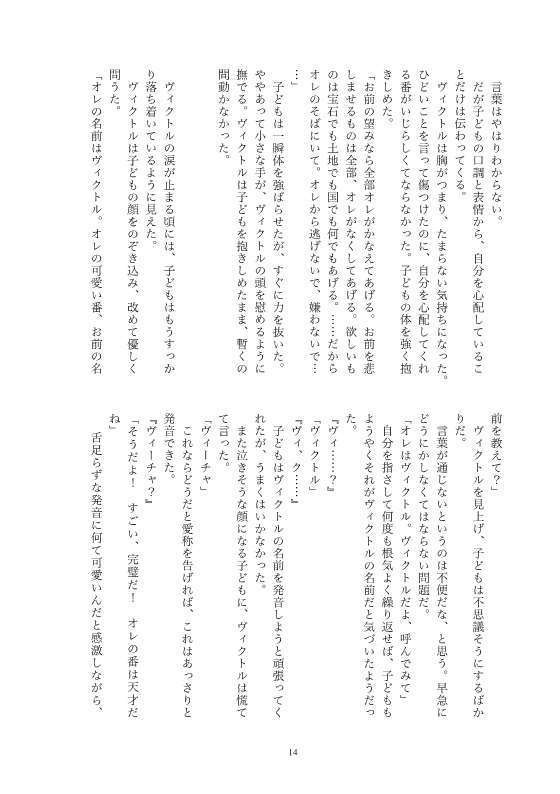 言葉はやはりわからない。
だが子どもの口調と表情から、自分を心配しているこ
とだけは伝わってくる。
ヴィクトルは胸がつまり、たまらない気持ちになった。
ひどいことを言って傷つけたのに、自分を心配してくれ
る番がいじらしくてならなかった。子どもの体を強く抱
きしめた。
「お前の望みなら全部オレがかなえてあげる。お前を悲
しませるものは全部、オレがなくしてあげる。欲しいも
のは宝石でも土地でも国でも何でもあげる。……だから
オレのそばにいて。オレから逃げないで、嫌わないで…
…」
子どもは一瞬体を強ばらせたが、すぐに力を抜いた。
ややあって小さな手が、ヴィクトルの頭を慰めるように
撫でる。ヴィクトルは子どもを抱きしめたまま、暫くの
間動かなかった。
ヴィクトルの涙が止まる頃には、子どもはもうすっか
り落ち着いているように見えた。
ヴィクトルは子どもの顔をのぞき込み、改めて優しく
問うた。
「オレの名前はヴィクトル。オレの可愛い番、お前の名
前を教えて？」
ヴィクトルを見上げ、子どもは不思議そうにするばか
りだ。
言葉が通じないというのは不便だな、と思う。早急に
どうにかしなくてはならない問題だ。
「オレはヴィクトル。ヴィクトルだよ、呼んでみて」
自分を指さして何度も根気よく繰り返せば、子どもも
ようやくそれがヴィクトルの名前だと気づいたようだっ
た。
『ヴィ……？』
「ヴィクトル」
『ヴィ、ク……』
子どもはヴィクトルの名前を発音しようと頑張ってく
れたが、うまくはいかなかった。
また泣きそうな顔になる子どもに、ヴィクトルは慌て
て言った。
「ヴィーチャ」
これならどうだと愛称を告げれば、これはあっさりと
発音できた。
『ヴィーチャ？』
「そうだよ！　すごい、完璧だ！　オレの番は天才だ
ね」
舌足らずな発音に何て可愛いんだと感激しながら、
14